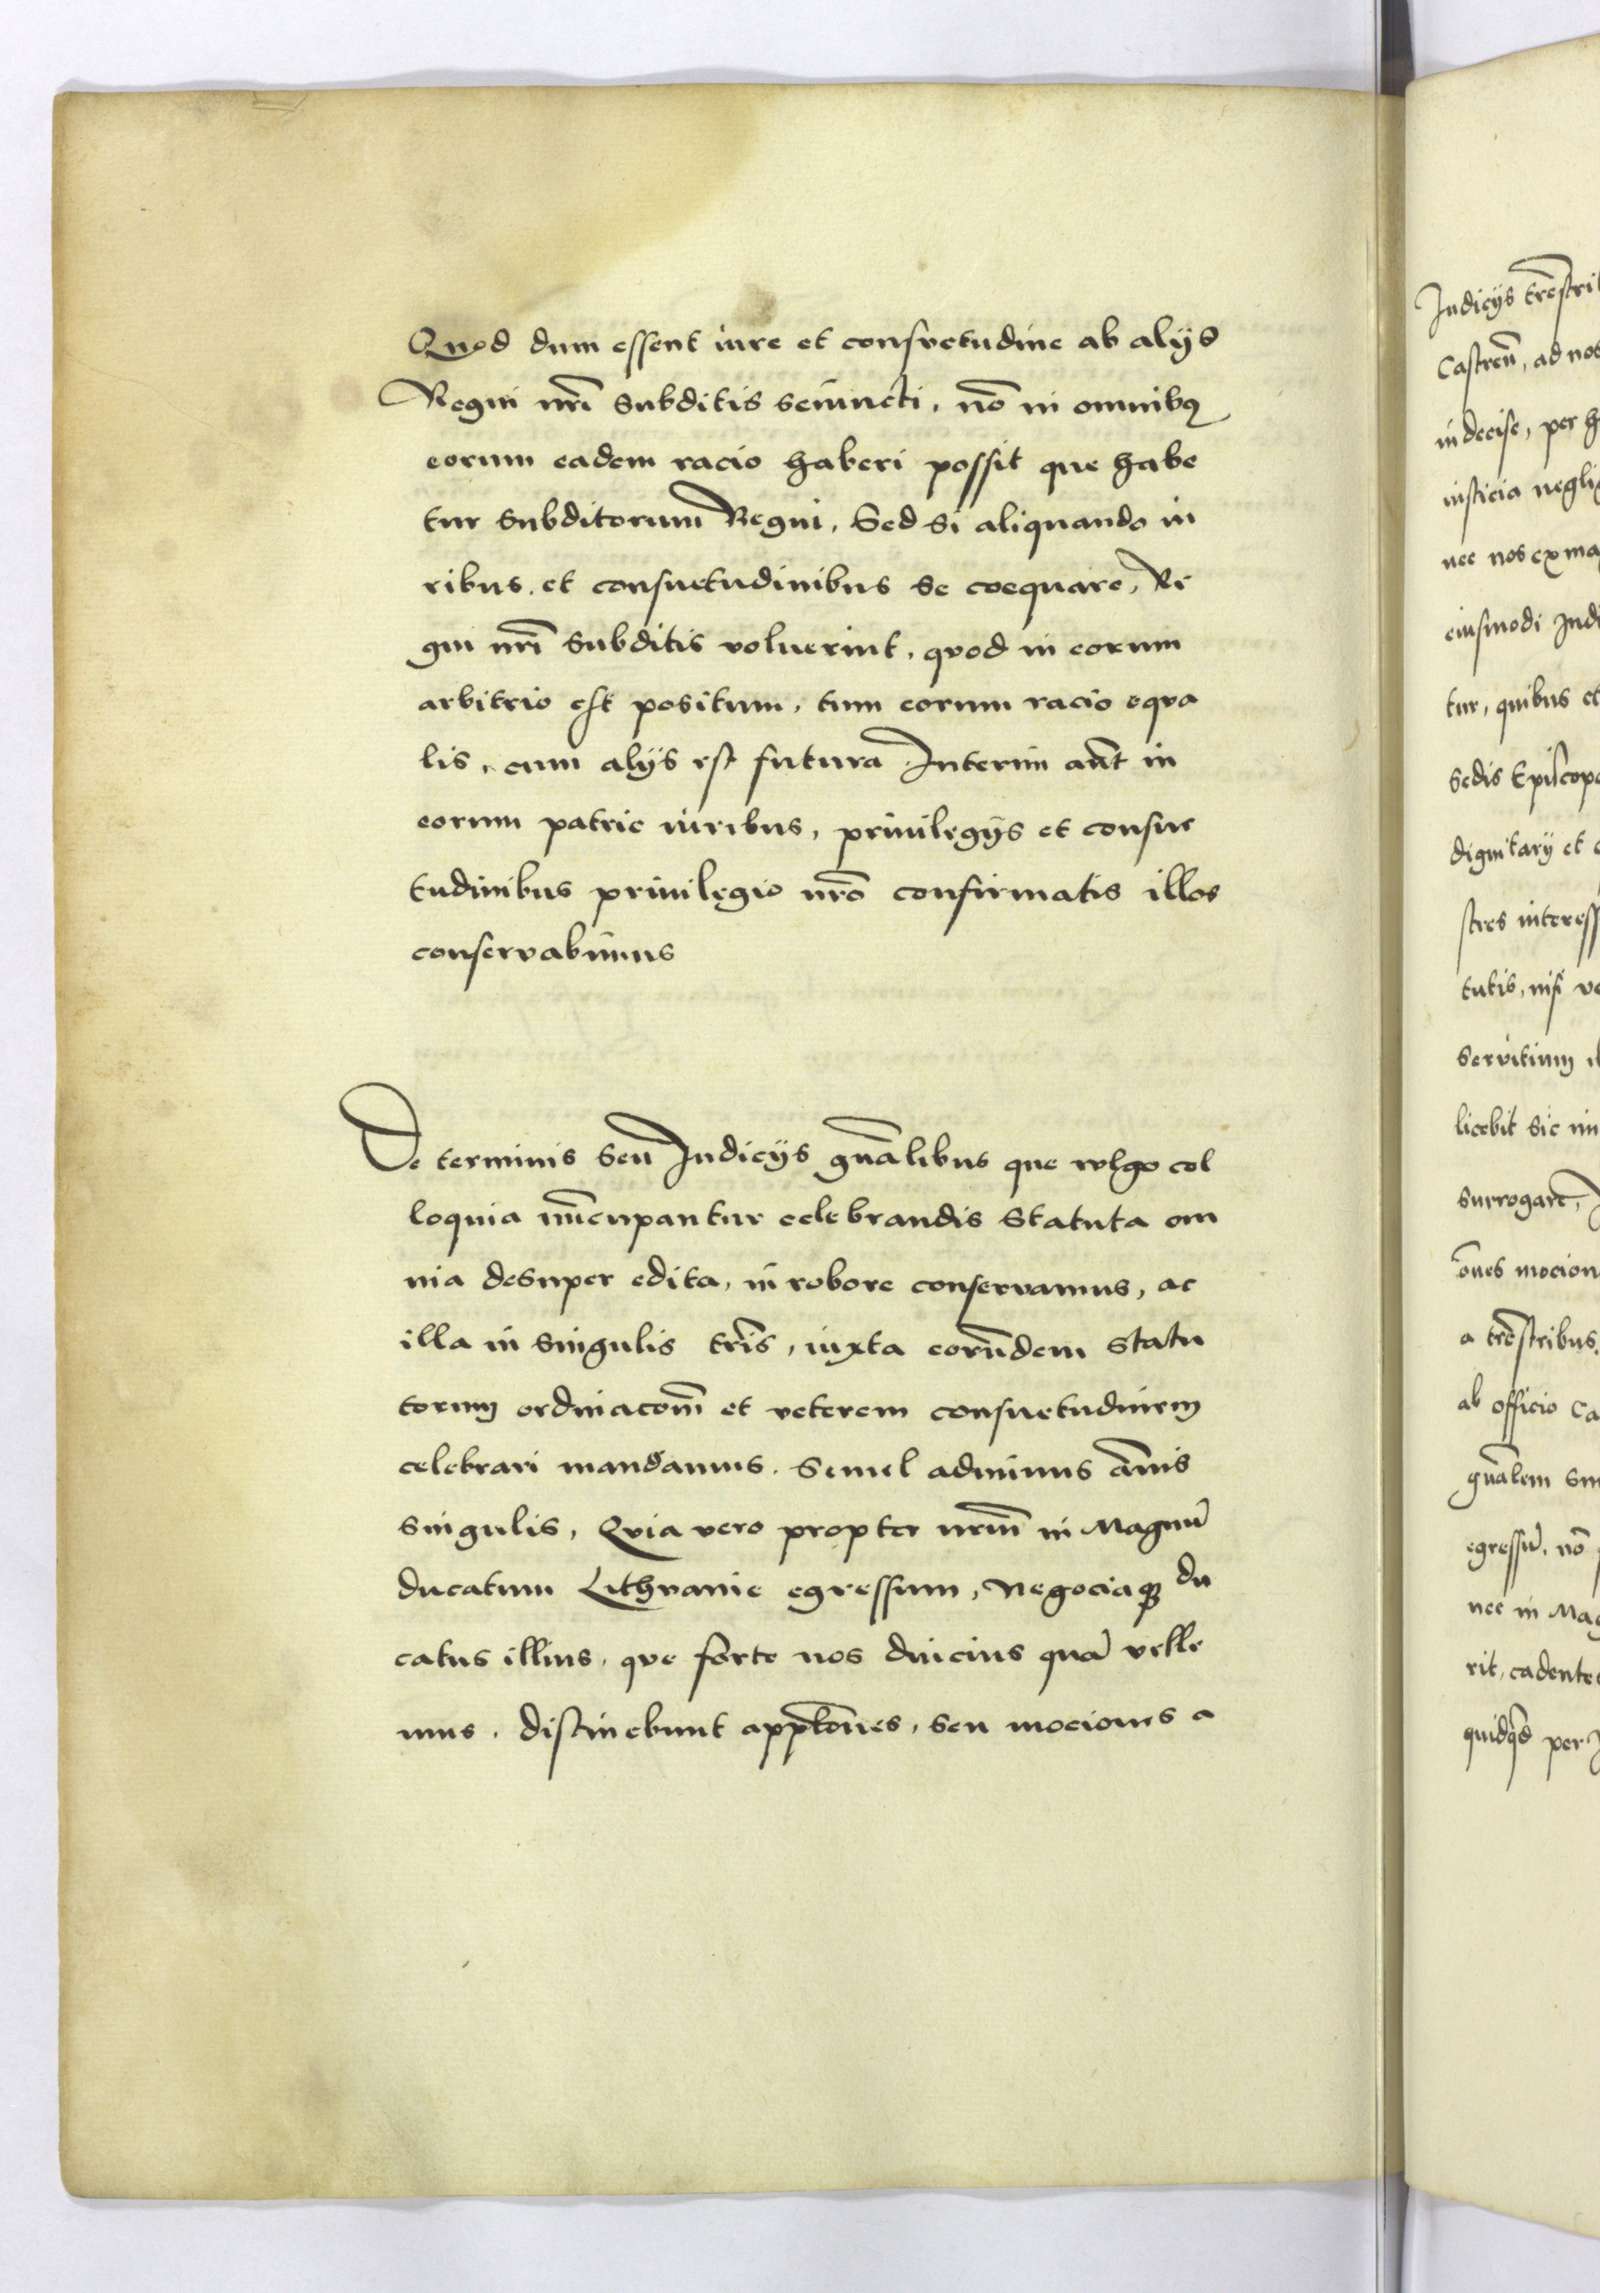 Quod dum essent iure et consvetudine ab alijs
Regni nrī subditis seiuncti, nō in omnibꝫ
eorum eadem racio haberi possit que habe
tur subditorum Regni, Sed si aliquando iu
ribus, et consuetudinibus se coequare, Re
gni nrī subditis voluerint, quod in eorum
arbitrio est positum, tum eorum racio equa
lis, cum alijs est futura Interim aūt in
eorum patrie iuribus, priuilegijs et consue
tudinibus priuilegio nrō confirmatis illos
conservabimus
De terminis seu Iudicijs gnālibus que wlgo col
loquia nūcupantur celebrandis Statuta om
nia desuper edita, in robore conservamus, ac
illa in singulis trīs, iuxta eorūdem Statu
torum ordinacōm et veterem consuetudinem
celebrari mandamus. Semel adminus ānis
singulis, Quia vero propter nrm̄ in Magnū
ducatum Lithvanie egressum, Negociaqꝫ du
catus illius, que forte nos diucius quā velle
mus, distinebunt appl̄tōnes, seu mociones a
Iudicijs trēstri
Castreñ, ad nos
indecise, per h
iusticia negli
nec nos ex ma
eiusmodi Iudi
tur, quibus et
Sedis Episcopa
dignitarij et
stres interess
tutis, nisi ve
servitium
licebit sic
surrogare,
oēs mocion
a trēstribus
ab officio Ca
gnālem
egressū, nō
nec in Mag
rit, cadente
quidqd per